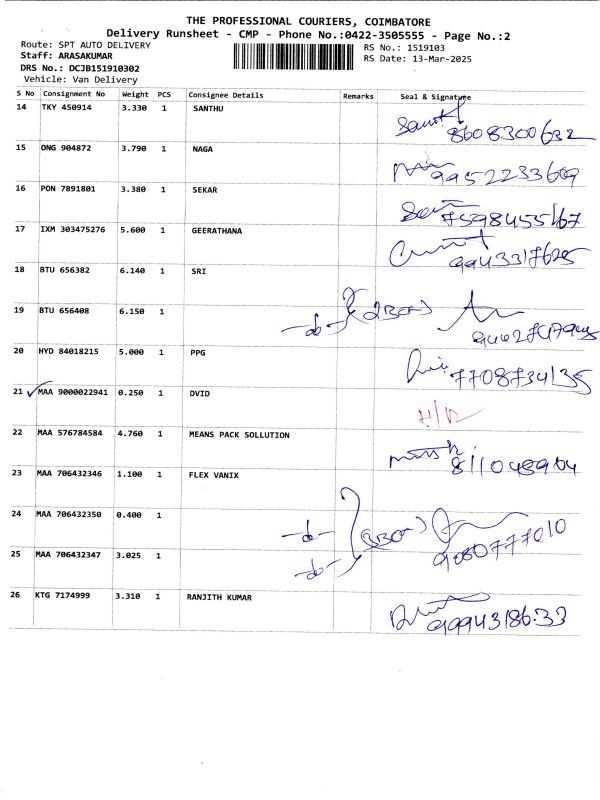 THE PROFESSIONAL COURIERS, COIMBATORE
Delivery Runsheet - CMP - Phone No.:0422-3505555 - Page No.:2
Route: SPT AUTO DELIVERY
Staff: ARASAKUMAR
DRS No.: DCJB151910302
Vehicle: Van Delivery
RS No.: 1519103
RS Date: 13-Mar-2025
S No Consignment No Weight PCS Consignee Details Remarks Seal & Signature
14 TKY 450914 3.330 1 SANTHU
8608300632
15 ONG 904872 3.790 1 NAGA
9952233609
16 PON 7891801 3.380 1 SEKAR
7598455167
17 IXM 303475276 5.600 1 GEERATHANA
9943317625
18 BTU 656382 6.140 1 SRI
19 BTU 656408 6.150 1
-do-
20 HYD 84018215 5.000 1 PPG
7708734135
21 MAA 9000022941 0.250 1 DVID
22 MAA 576784584 4.760 1 MEANS PACK SOLLUTION
8110489904
23 MAA 706432346 1.100 1 FLEX VANIX
24 MAA 706432350 0.400 1
-do-
9080777010
25 MAA 706432347 3.025 1
-do-
26 KTG 7174999 3.310 1 RANJITH KUMAR